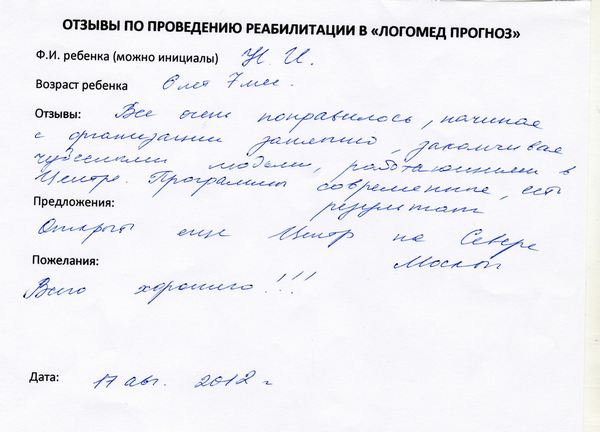 ОТЗЫВЫ ПО ПРОВЕДЕНИЮ РЕАБИЛИТАЦИИ В «ЛОГОМЕД ПРОГНОЗ»
Ф.И. ребенка (можно инициалы) Н. И.
Возраст ребенка 6 лет 7 мес.
Отзывы: Все очень понравилось, начиная
с организации занятий, заканчивая
чудесными людьми, работающими в
Центре. Программы современные, есть
результат
Предложения:
Открыть еще Центр на Севере
Москвы
Пожелания:
Всего хорошего!!!
Дата: 17 авг. 2012 г